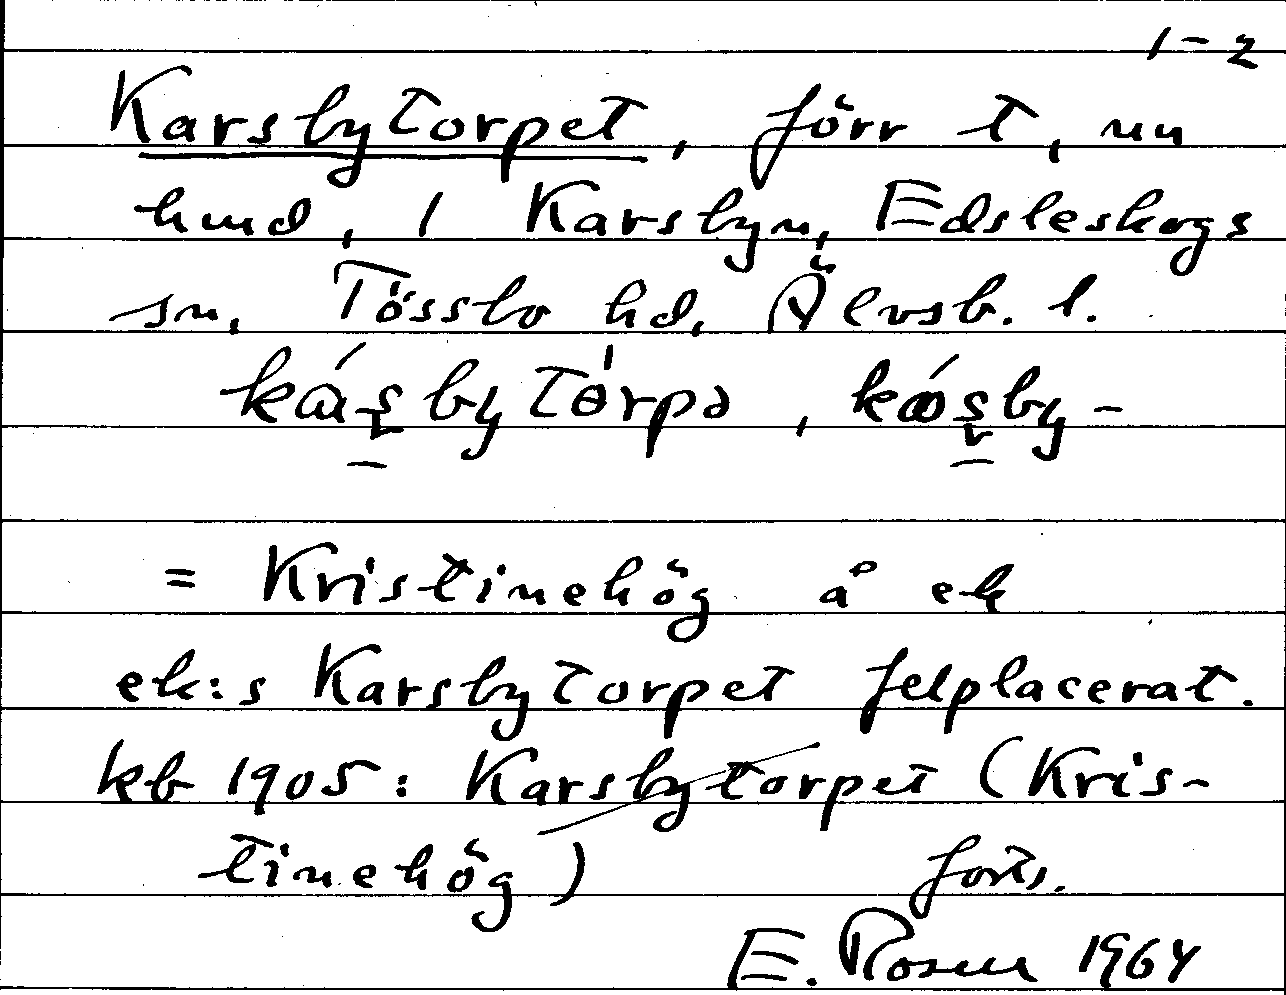 1-2
Karsbytorpet, förr t, nu
hmd, 1 Karsbyn, Edsleskogs
sn, Tössbo hd, Älvsb. l.
= Kristinehög å ek
ek:s Karsbytorpet felplacerat.
kb 1905: Karsbytorpet (Kris-
tinehög) forts.
E. Rosen 1964